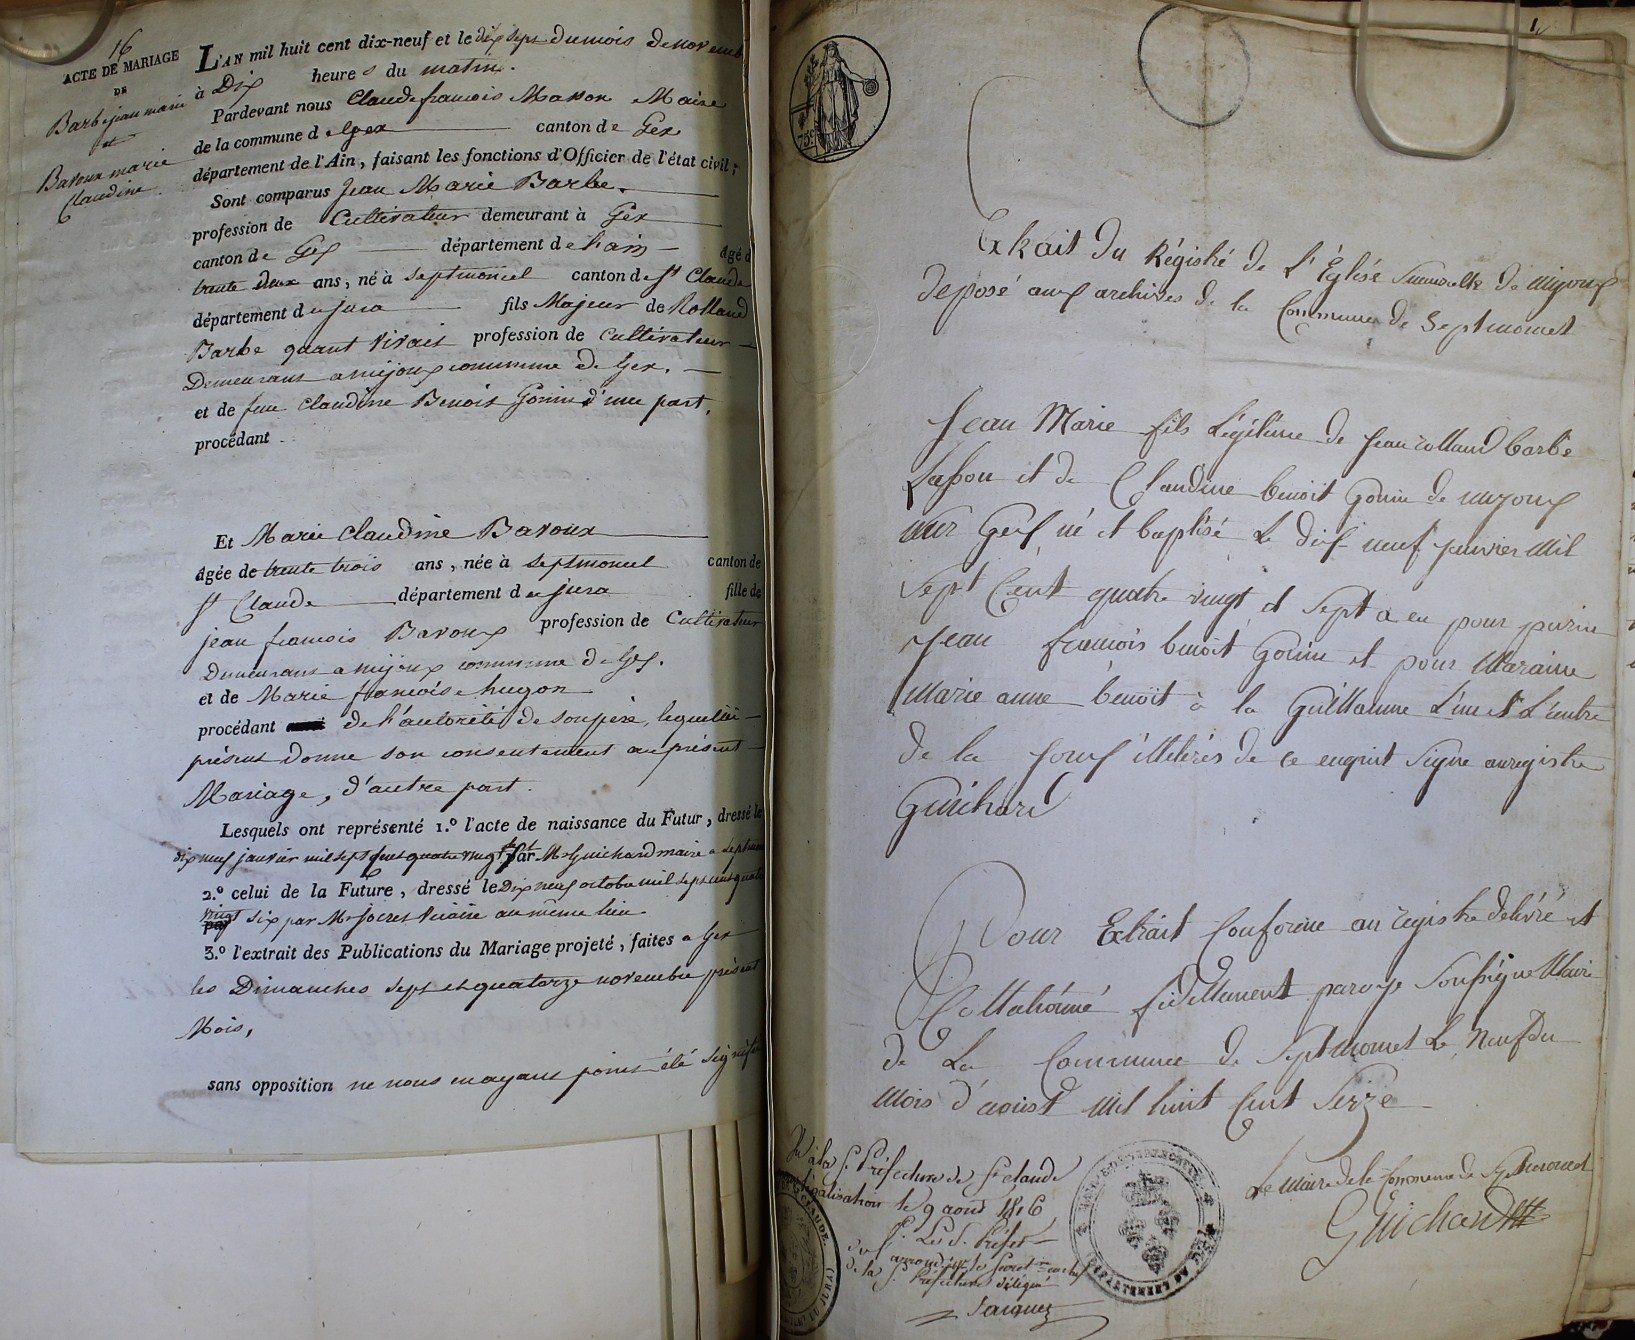 16
ACTE DE MARIAGE
DE
Barbe jean marie
et
Baroux marie
Claudine
L'AN mil huit cent dix-neuf et le dix sept du mois de novemb
à Dix heures du matin.
Pardevant nous Claude françois Maire
de la commune de Gex canton de Gex
département de l'Ain, faisant les fonctions d'Officier de l'état civil;
Sont comparus Jean Marie Barbe.
profession de Cultivateur demeurant à Gex
canton de Gex département de l'ain agé d
trente deux ans, né à septmoncel canton de St Claude
département du jura fils Majeur de Rolland
Barbe quant vivait profession de Cultivateur
Demeurant a mijoux commune de Gex.
et de feue Claudine Benoit Gonin d'une part,
procédant
Et Marie Claudine Baroux
agée de trente trois ans, née à septmoncel canton de
St Claude département du jura fille de
jean francois Baroux profession de Cultivateur
Demeurant a mijoux commune de Gex.
et de Marie francoise hugon
procédant de l'autorité de son père, lequel ici
présent donne son consentement au présent
Mariage, d'autre part.
Lesquels ont représenté 1.º l'acte de naissance du Futur, dressé le
dix neuf janvier mil sept cent quatre vingt sept par Mr Guichard maire a septmon
2.º celui de la Future, dressé le Dix neuf octobre mil sept cent quatre
vingt six par Mr vicaire au même lieu.
3.º l'extrait des Publications du Mariage projeté, faites a Gex
les Dimanches sept et quatorze novembre présent
Mois,
sans opposition ne nous en ayant point été signifié
75c
Extrait Du Régistré de L'Églisé Succursalle de mijoux
déposé aux archives de la Commune de Septmoncel
Jean Marie fils Légitime de Jean rolland barbe
et de Claudine benoit Gonin de mijoux
sur Gex né et baptisé Le dix neuf janvier Mil
Sept Cent quatre vingt et Sept a eu pour parin
Jean francois benoit Gonin et pour Maraine
Marie anne benoit à la Guillaume L'un et L'autre
de la foux illiterés de ce enquit Signe au registre
Guichard
Pour Extrait Conforme au registre delivré et
Collationné fidellement par nous Soussigné Maire
de La Commune de Septmoncel Le Neuf du
Mois d'aoust Mil huit Cent Seize
Vu à la S. Préfecture de St claude
légalisation le 9 aout 1816
Le S. Préfet
de la S. Préfecture délégué
Le Maire de la Commune de Septmoncel
Guichard